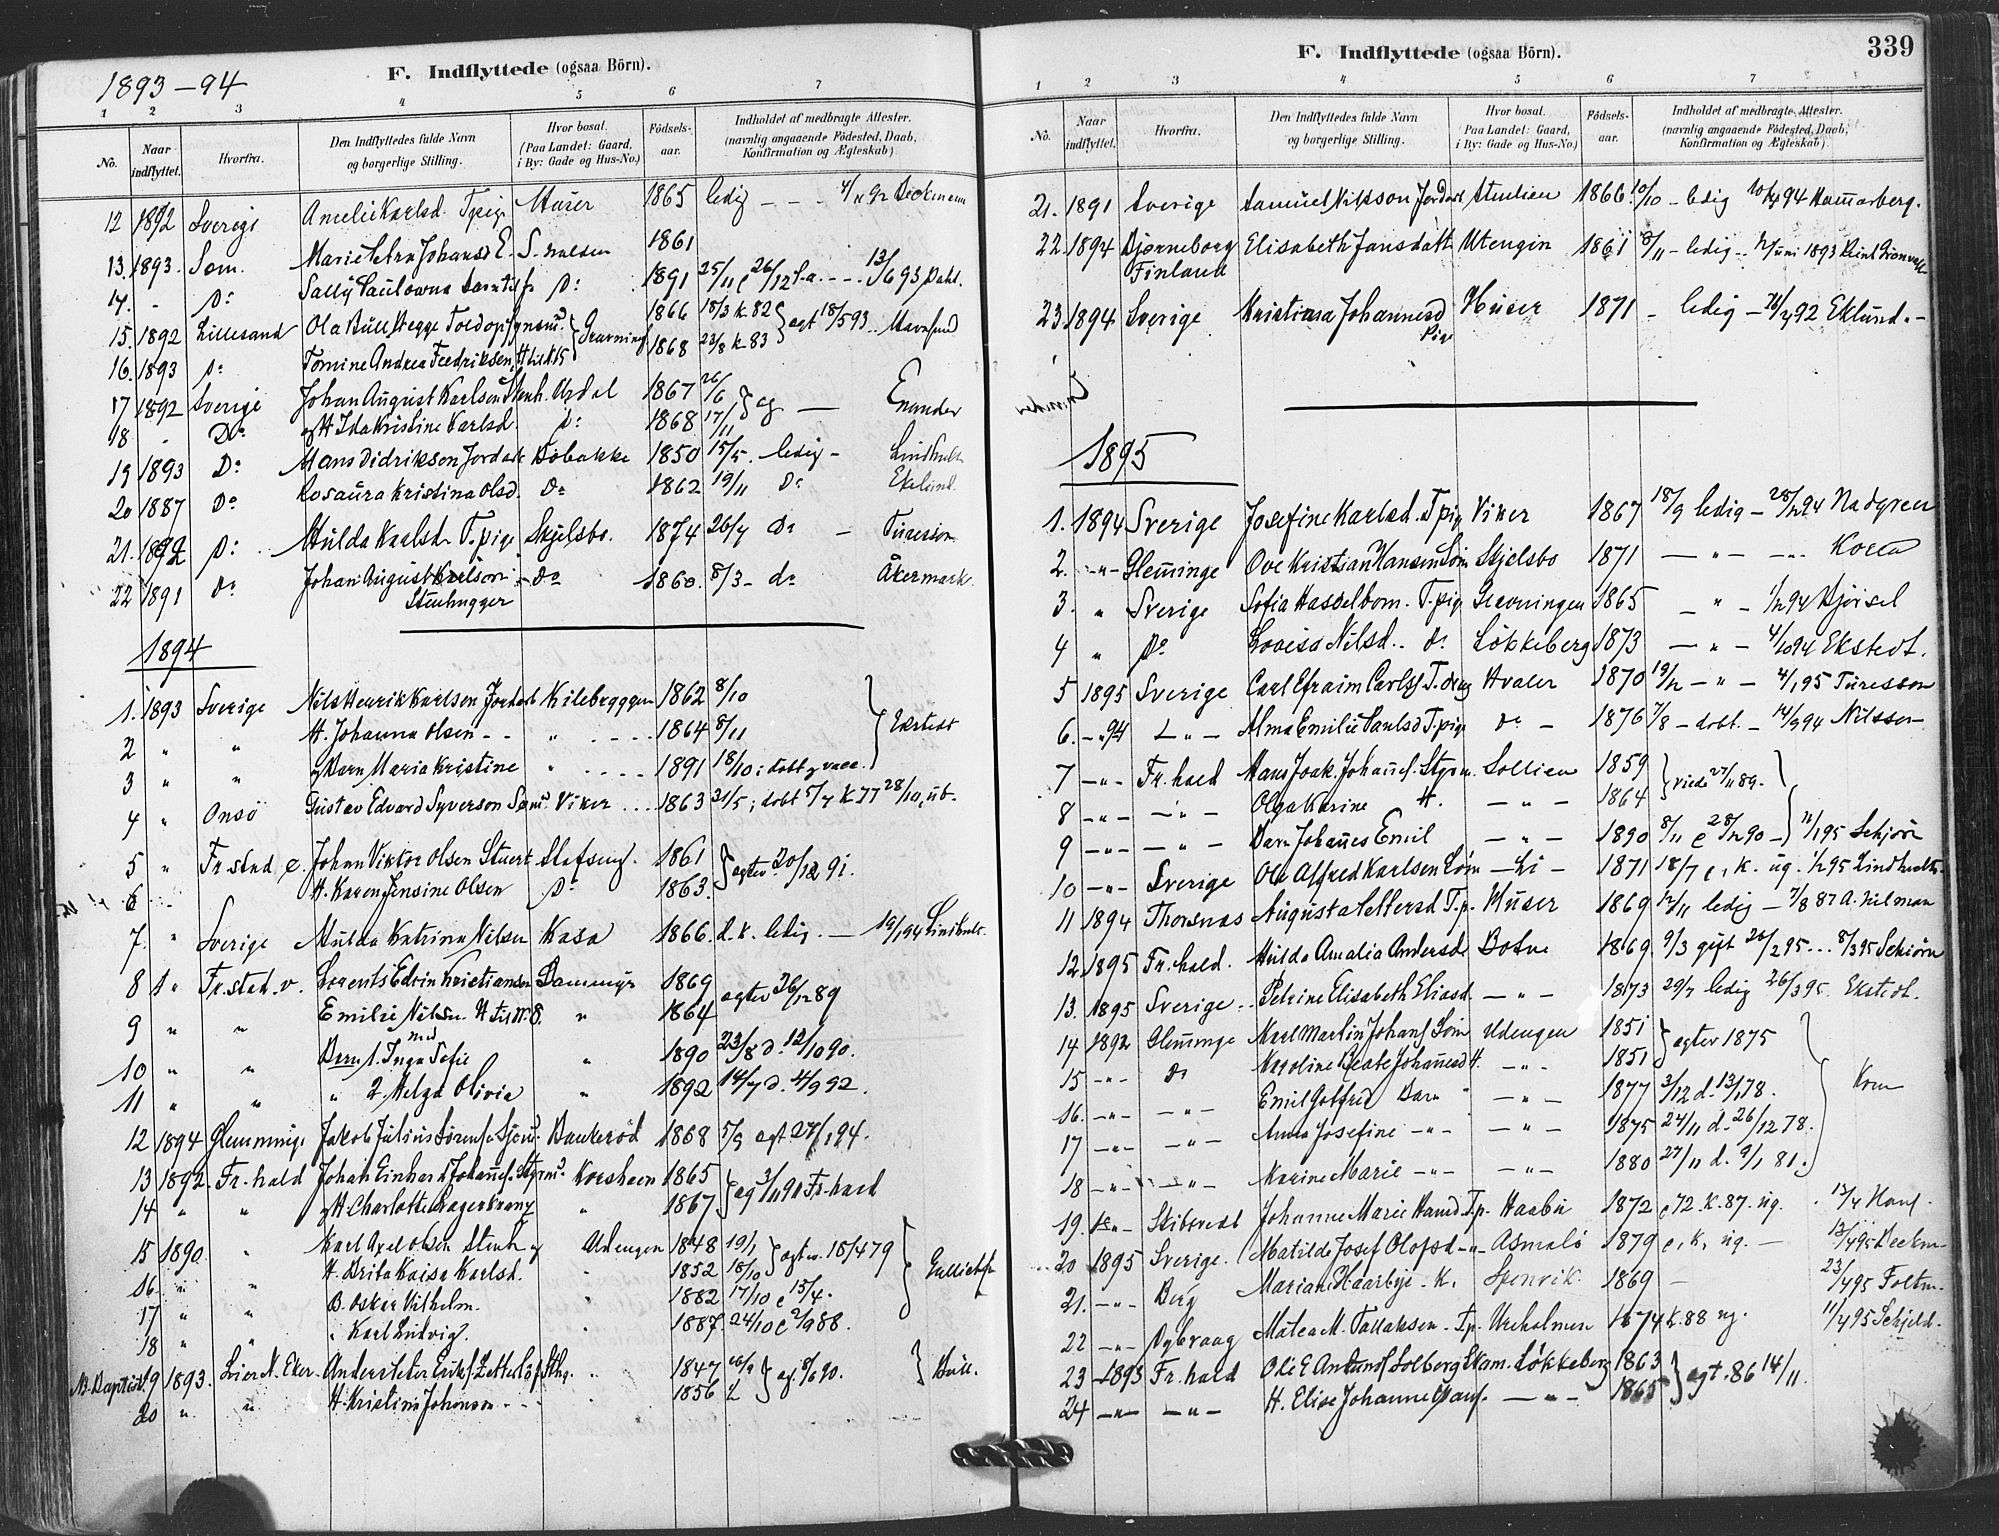 1893-94
F. Indflyttede (ogsaa Börn).
1 2 3 4 5 6 7
No. Naar indflyttet. Hvorfra. Den Indflyttedes fulde Navn og borgerlige Stilling. Hvor bosat. (Paa Landet: Gaard, i By: Gade og Hus-No.) Födsels-aar. Indholdet af medbragte Attester. (navnlig angaaende Födested, Daab, Konfirmation og Ægteskab)
12 1892 Sverige Amelie Karlsd. T.pige Huser 1865 ledig - - - 4/11 92
13. 1893. Som. Marie Johansd E. 1861
14. - Do Sally 1891 25/11 26/12 - - - 13/6 93 Dahl.
15. 1892 Lillesand Ola Bull Hegge Gravning 1866 18/3 k 82 ægt 18/5 93
16. 1893 Do Tomine Andrea Fredriksen, H 1868 23/8 k 83
17 1892 Sverige Johan August Karlsen Stenh. Urdal 1867 26/6 eg - Enander
18 - Do og H Ida Kristine Karlsd. Do 1868 17/11
19 1893 Do Hans Didrikson Jordarb Bobakke 1850 15/5. ledig - Lindhult
20 1887 Do Rosaura Kristina Olsd. Do 1862 19/11 Do Eklund.
21. 1892 Do Hulda Karlsd. T.pige Skjelsbo. 1874 26/7 Do - Turesson
22 1891 Do Johan August Karlson - Do 1860. 8/3 - do Åkermark.
Stenhugger
1894
1. 1893 Sverige Nils Henrik Karlson Jordarb Kilebryggen 1862 8/10
2 " " H. Johanna Olsen - - " - - - - 1864 8/11 Ekstedt
3 " " og Barn Maria Kristine " - - - - 1891 18/10; döbt og vacc.
4 " Onsö Gustav Edvard Syverson Sömd. Viker - - - 1863 31/5; döbt 5/7 k 77 28/10, ub-
5 " Fr.stad, c. Johan Viktor Olsen Stuert 1861 ægtev 20/12 91.
6 - H. Karen Jensine Olsen Do 1863.
7. " Sverige Hulda Katrina Nilsen Kasa 1866. d. k. ledig. - 19/1 94 Lindhult.
8 " Fr.stad. v. Lorents Edvin Kristiansen Dammyr 1869 ægtev 26/12 89
9 " " Emilie Nilsen H til N. 8. " 1864
med
10 " " Barn 1. Inga Sofie " 1890 23/8 d. 12/10 90.
11 " " " 2. Helga Olivia " 1892 14/7 d. 4/9 92.
12 1894 Glemminge Jakob Julius Sørensen Sjöm. Bankeröd 1868 5/9 ægt 27/1 94.
13 1892. Fr.hald Johan Einhard Johannes. Styrmd. Korshavn 1865 æg 3/11 90 Fr.hald
14 " " og H. Charlotte Lagerkranz " 1867
15 1890. " Karl Axel Olsen Stenh og Utengen 1848 19/1 ægtev. 15/4 79
16. " " H. Brita Kaisa Karlsd. " 1852 18/10
17 " " B. Oskar Vilhelm. " 1882 17/10 c 15/4.
18 " " " Karl Ludvig. 1887. 24/10 c 2/9 88.
NB. Baptist. 19 1893. Lier N. Eker. Anders Peter Eriks. Zetterlöf Sthg. " 1847 eg. 8/6 90.
20 " " H. Kristine Johanson - - - 1856
F. Indflyttede (ogsaa Börn).
339
1 2 3 4 5 6 7
No. Naar indflyttet. Hvorfra. Den Indflyttedes fulde Navn og borgerlige Stilling. Hvor bosat. (Paa Landet: Gaard, i By: Gade og Hus-No.) Födsels-aar. Indholdet af medbragte Attester. (navnlig angaaende Födested, Daab, Konfirmation og Ægteskab)
21. 1891 Sverige Samuel Nilsson Jordarb Stenlien 1866 10/10 - ledig 10/4 94 Hammarberg.
22. 1894 Bjørneborg Elisabeth Jansdatt Utengin 1861 8/11 - ledig - juni 1893
Finland
23. 1894 Sverige Kristiana Johannesd Huser 1871 - ledig - 92 Eklund. -
Pige
Enander
1895
1. 1894 Sverige Josefine Karlsd. T.pig Viker 1867 18/9 ledig - 28/12 94 Nadgren
2. - " - Glemminge Ove Kristian Hansen Söm Skjelsbo 1871 - " - - " - Koren
3. " Sverige Sofia Hasselbom. T.pig Gravningen 1865 - " - 1/12 94
4 " Do Lovisa Nilsd.. Do Løkkeberg 1873 - " - 4/10 94 Ekstedt.
5 1895 Sverige Carl Efraim Carls. T. dreng Hvaler 1870 19/12 - " - 4/1 95 Turesson
6. - " 94 - " - Alma Emilie T.pige Do - 1876 7/8 - döbt. - 14/9 94 Nilsson
7 - " - Fr.hald Hans Joak. Johannes. Styrm. Sollien 1859 viede 27/11 89.
8 - " - - " - Olga Karine H. - " - 1864
9 - " - - " - Barn Johannes Emil - " - 1890 8/11 c 28/12 90 - 11/1 95 Schjörn
10 - " - Sverige Ole Alfred Karlsen Söm - Li - 1871 18/7 c, k. ug. 1/2 95 Lindhult.
11 1894 Thorsnæs Augusta Pettersd T.p. Huser 1869 12/11 ledig - 7/8 87 A. Hilman
12. 1895 Fr.hald. Hilda Amalia Andersd Botne 1869. 9/3 gift 26/2 95... 8/3 95 Schiörn
13. 1895 Sverige. Petrine Elisabeth Eliasd. - " - 1873 29/7 ledig 26/3 95. Ekstedt.
14 1892 Glemminge Karl Martin Johans Söm Udengen 1851 ægtev 1875
15 - " - Do Karoline Beate Johannesd H. - " - 1851
16. - " - - " - Emil Gotfred Barn - " - 1877 3/12 d. 13/1 78. Koren
17 - " - - " - Anna Josefine - " - - " - 1875 24/11 d. 26/12 78.
18 - " - - " - Karine Marie - " - - " - 1880 27/11 d. 9/1 81.
19. - " - Skibtvedt Johanne Marie Hansd T.p. Haabu 1872 c 72. k. 87. ug. 13/4 Hans.
20 1895 Sverige. Matilde Josef. Olofsd - " - Asmalö 1879 c, k, ug. - 13/4 95
21. - " - Berg Marian Haarbye. K. Spenvik. 1869 - 23/4 95
22 - " - Dybvaag Matea M. Tallaksen. T.p. Ureholmen 1874 k. 88 ug. 11/4 95 Schjeld.
23 - 1893 Fr.hald Ole E Solberg Skom. Løkkeberg 1863 ægt. 86 14/11.
24 - " - - " - H. Elise Johanne - " - 1865